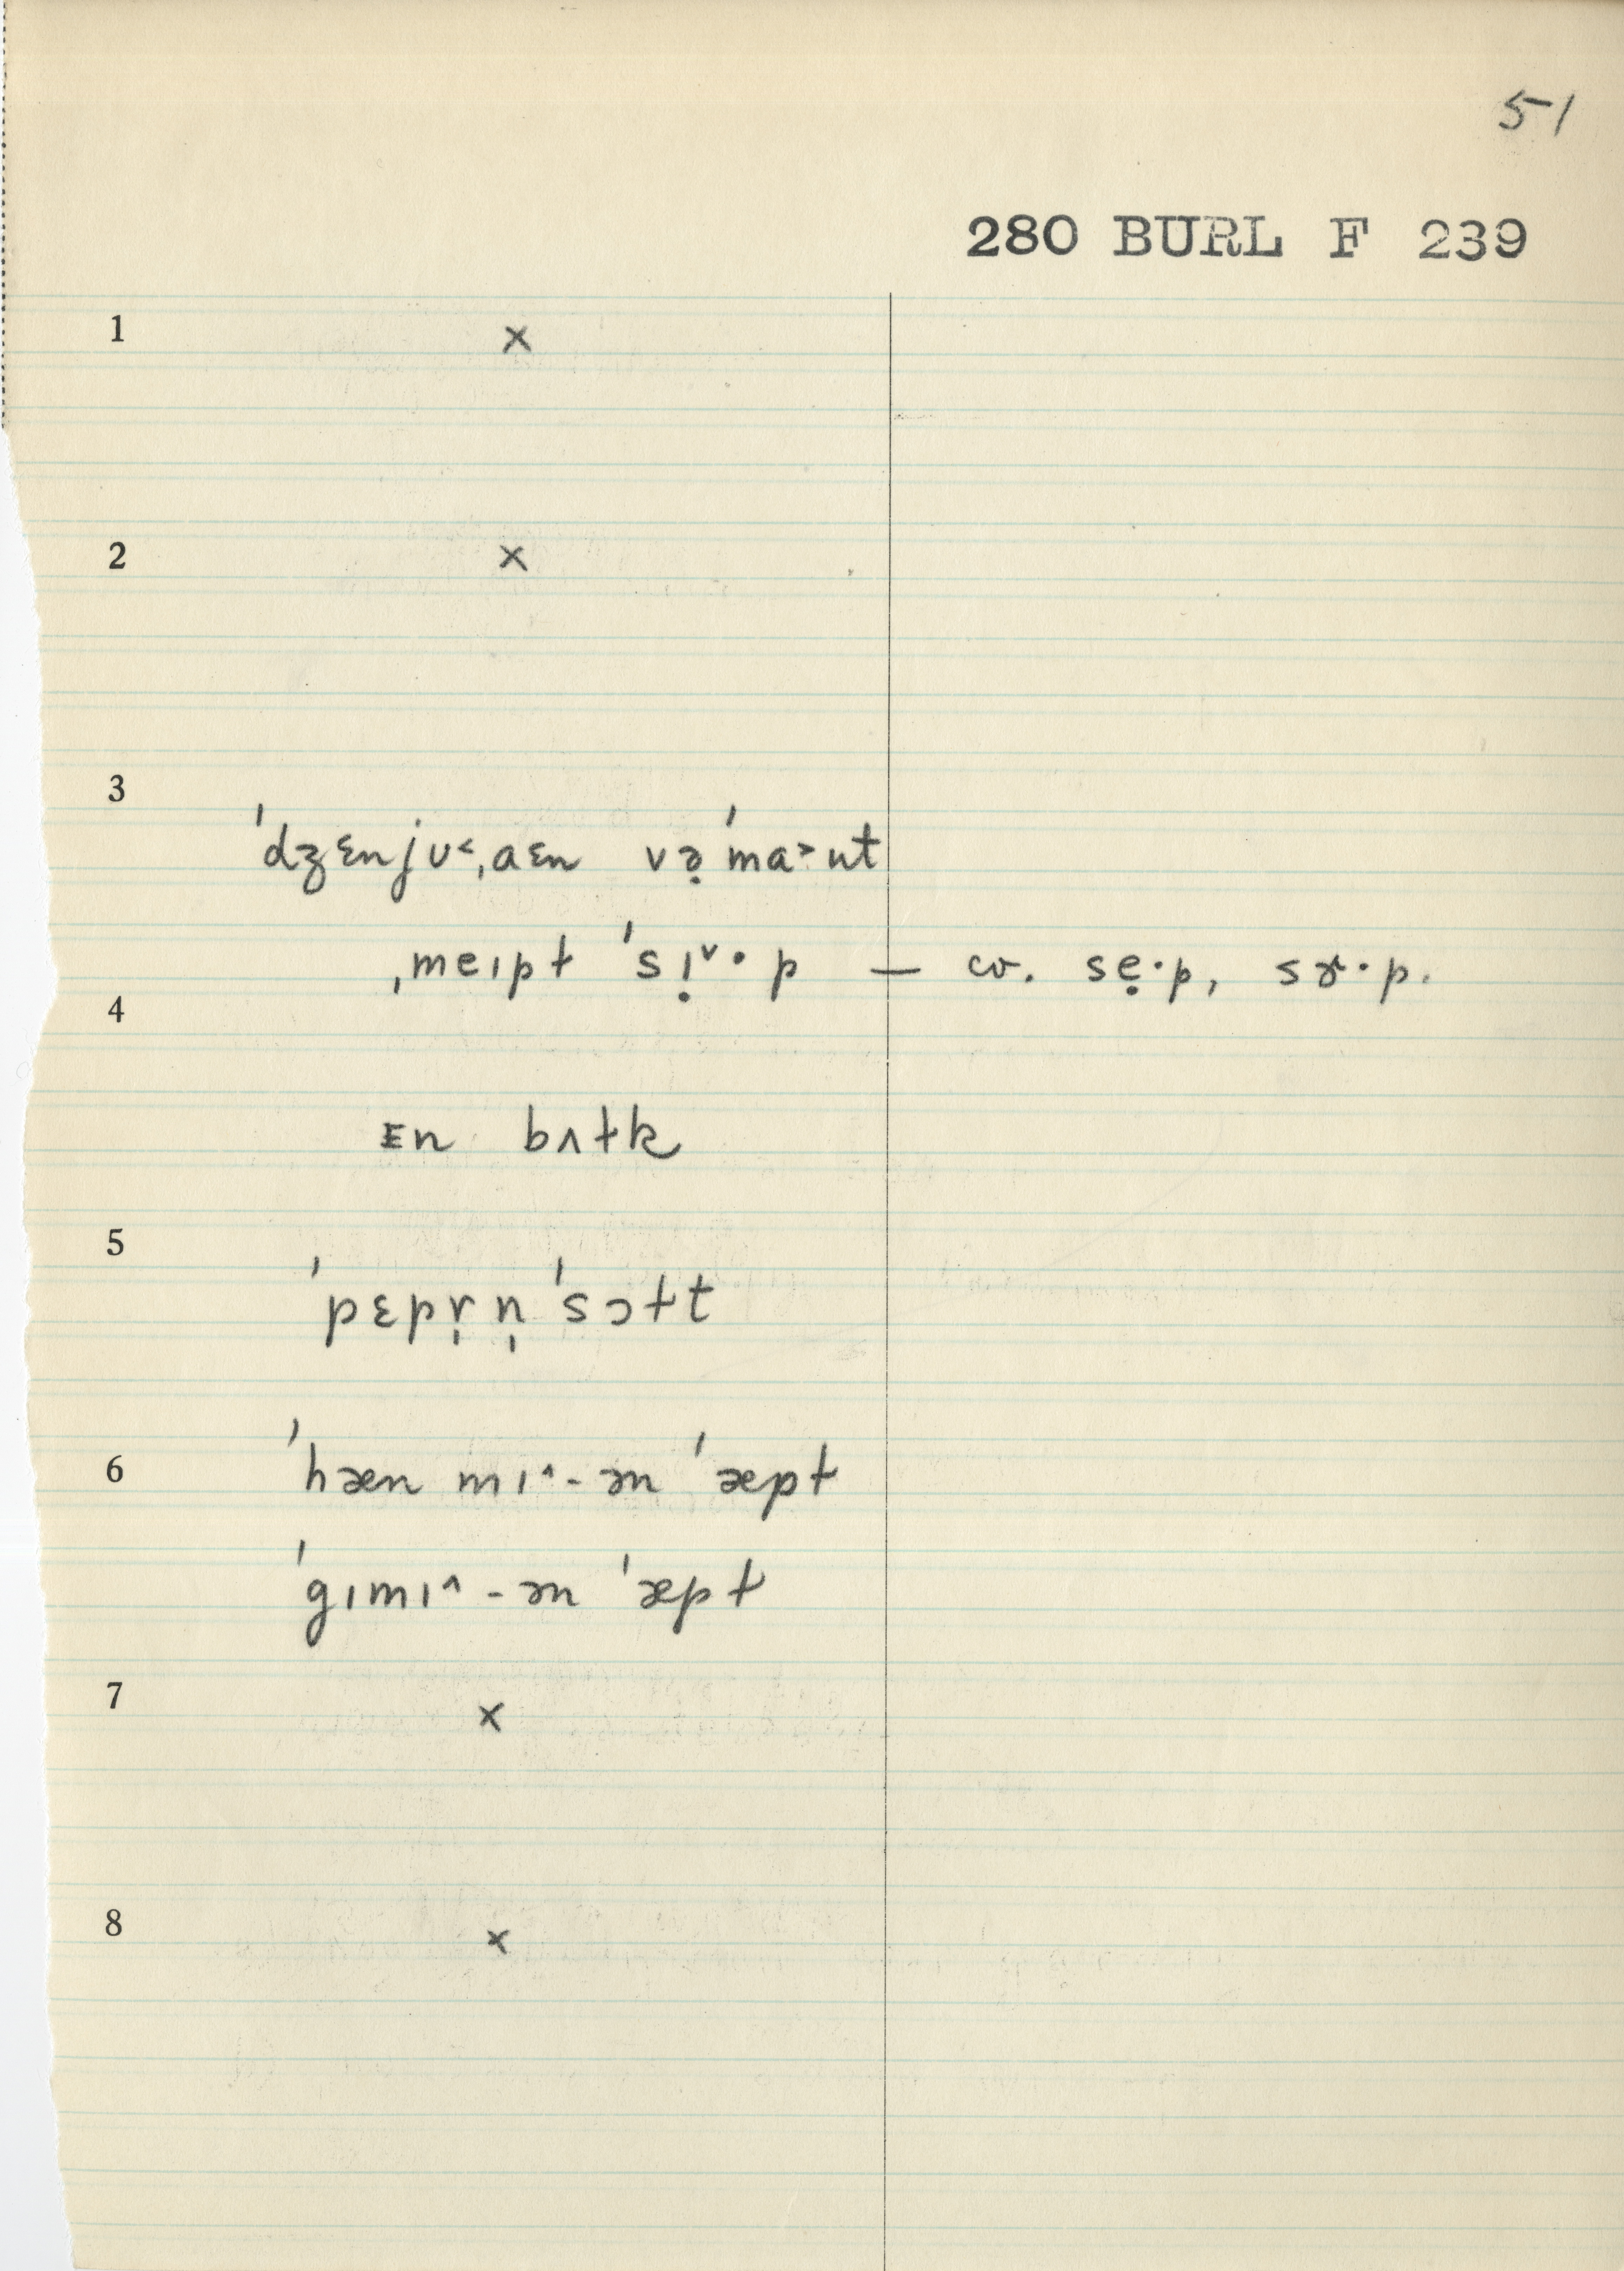 51
280 BURL F 239
1 ×
2 ×
3
ˈdʒɛnjʊ˂ˌaɛn və̣ˈma˃ʊt
ˌmeɪpɫ ˈsɪ̣ˇ·p — cv. sẹ·p, sɤ·p.
4
ɛn bʌɫk
5
ˈpɛpɤ̣n̩ ˈsɔɫt
6
ˈhæn mɪ^-æn ˈæpɫ
ˈgɪmɪ^-æn ˈæpɫ
7 ×
8 ×